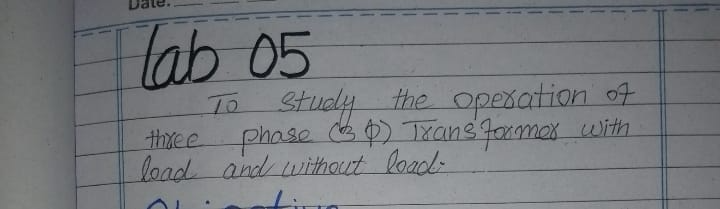 Date:
lab 05
To study the operation of
three phase (3 φ) Transformer with
load and without load:-
Objective